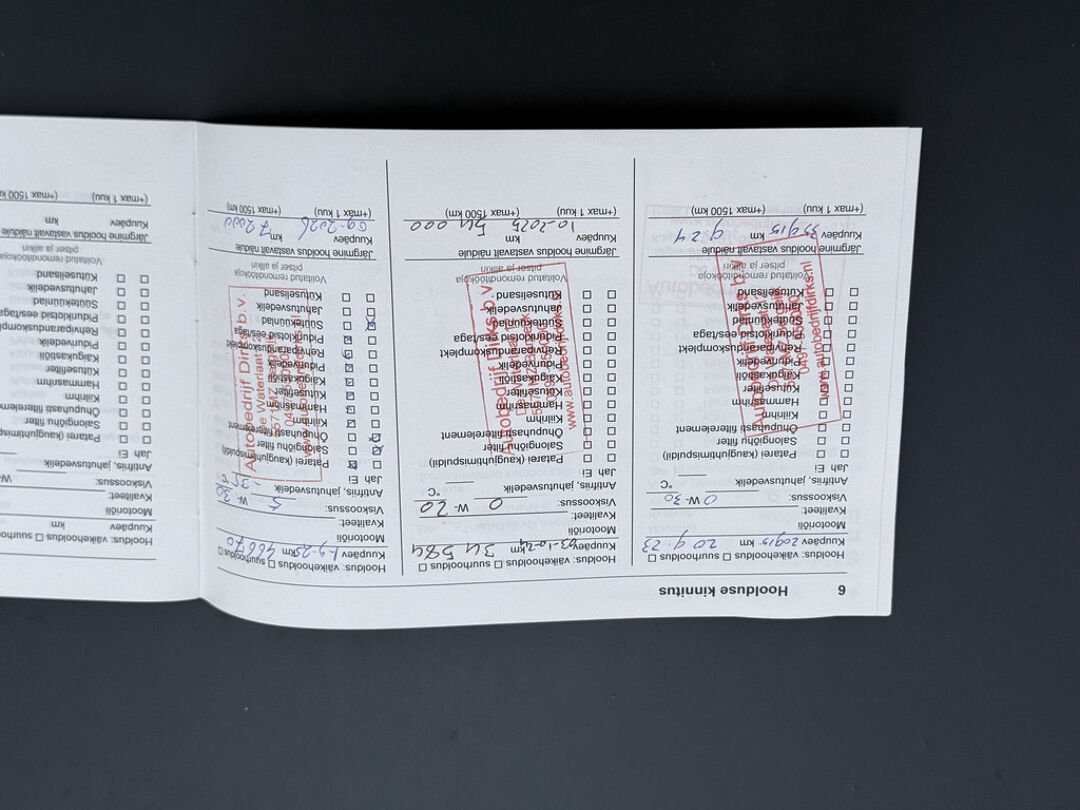 6 Hoolduse kinnitus
Hooldus: väikehooldus ☐ suurhooldus ☐
Kuupäev 20915 km 20 9. 23
Mootoriõli
Kvaliteet:
Viskoossus: 0 W- 30
Antifriis, jahutusvedelik °C
Jah Ei
Patarei (kaugjuhtimispuldil)
Salongiõhu filter
Õhupuhasti filterelement
Kiilrihm
Hammasrihm
Kütusefilter
Käigukastiõli
Pidurivedelik
Rehviparanduskomplekt
Piduriklotsid ees/taga
Süüteküünlad
Jahutusvedelik
Kütuselisand
Volitatud remonditöökoja
pitser ja allkiri
www.autobedrijfdirks.nl
Järgmine hooldus vastavalt näidule
Kuupäev 35915 km 9 24
(+max 1 kuu) (+max 1500 km)
Hooldus: väikehooldus ☐ suurhooldus ☐
Kuupäev 03-10-24 km 34 584
Mootoriõli
Kvaliteet:
Viskoossus: 0 W- 20
Antifriis, jahutusvedelik °C
Jah Ei
Patarei (kaugjuhtimispuldil)
Salongiõhu filter
Õhupuhasti filterelement
Kiilrihm
Hammasrihm
Kütusefilter
Käigukastiõli
Pidurivedelik
Rehviparanduskomplekt
Piduriklotsid ees/taga
Süüteküünlad
Jahutusvedelik
Kütuselisand
Volitatud remonditöökoja
pitser ja allkiri
Autobedrijf Dirks b.v.
www.autobedrijfdirks
Järgmine hooldus vastavalt näidule
Kuupäev 10-2025 km 54 000
(+max 1 kuu) (+max 1500 km)
Hooldus: väikehooldus ☐ suurhooldus ☐
Kuupäev km 46670
Mootoriõli
Kvaliteet:
Viskoossus: 5 W- 30
Antifriis, jahutusvedelik -35 °C
Jah Ei
Patarei (kaugjuhtimispuldil)
Salongiõhu filter
Õhupuhasti filterelement
Kiilrihm
Hammasrihm
Kütusefilter
Käigukastiõli
Pidurivedelik
Rehviparanduskomplekt
Piduriklotsid ees/taga
Süüteküünlad
Jahutusvedelik
Kütuselisand
Volitatud remonditöökoja
pitser ja allkiri
Autobedrijf Dirks b.v.
De Waterlaat
Järgmine hooldus vastavalt näidule
Kuupäev 09-2026 km 72000
(+max 1 kuu) (+max 1500 km)
Hooldus: väikehooldus ☐ suurhooldus
Kuupäev km
Mootoriõli
Kvaliteet:
Viskoossus: W-
Antifriis, jahutusvedelik
Jah Ei
Patarei (kaugjuhtimisp
Salongiõhu filter
Õhupuhasti filterelem
Kiilrihm
Hammasrihm
Kütusefilter
Käigukastiõli
Pidurivedelik
Rehviparanduskomple
Piduriklotsid ees/taga
Süüteküünlad
Jahutusvedelik
Kütuselisand
Volitatud remonditöökoja
pitser ja allkiri
Järgmine hooldus vastavalt näidule
Kuupäev km
(+max 1 kuu) (+max 1500 km